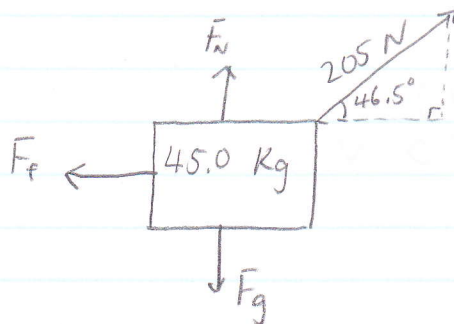 F_N
205 N
46.5°
F_f
45.0 Kg
F_g